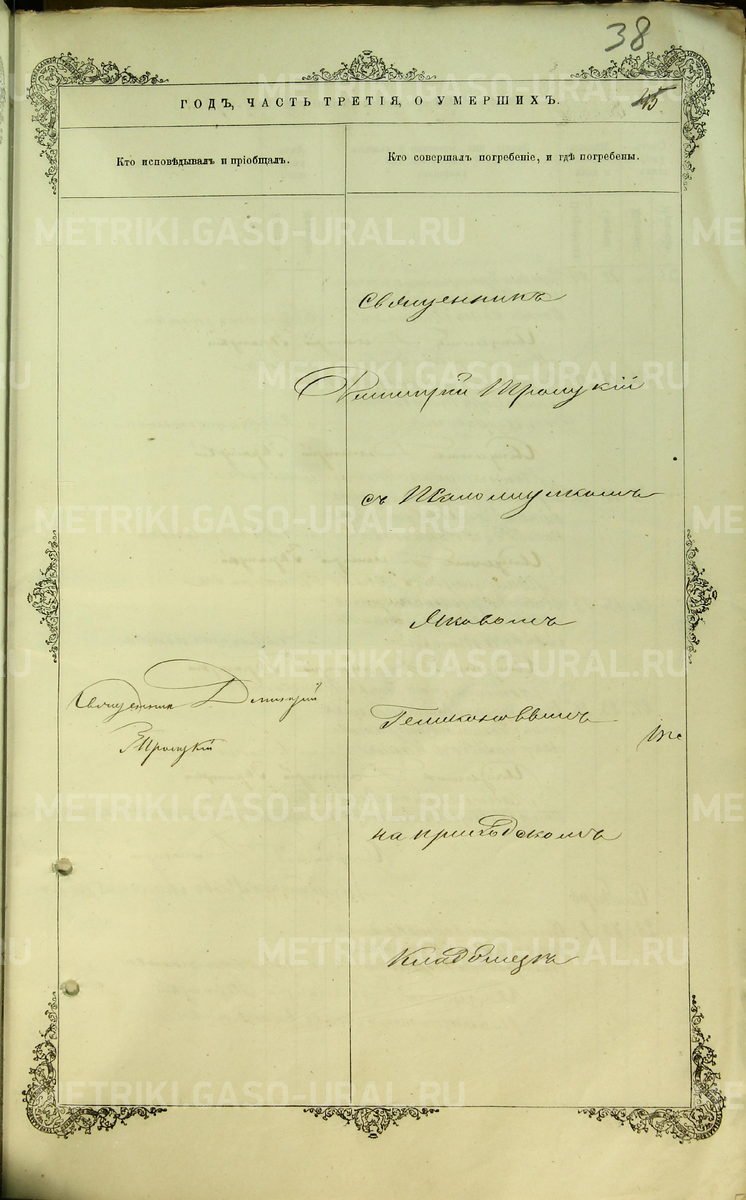 38
45
ГОДЪ, ЧАСТЬ ТРЕТІЯ, О УМЕРШИХЪ.
Кто исповѣдывалъ и пріобщалъ.
Кто совершалъ погребеніе, и гдѣ погребены.
Священникъ
Димитрій Троицкій
съ Псаломщикомъ
Яковомъ
на приходскомъ
Кладбищѣ
Священник Димитрій
Троицкій
METRIKI.GASO-URAL.RU